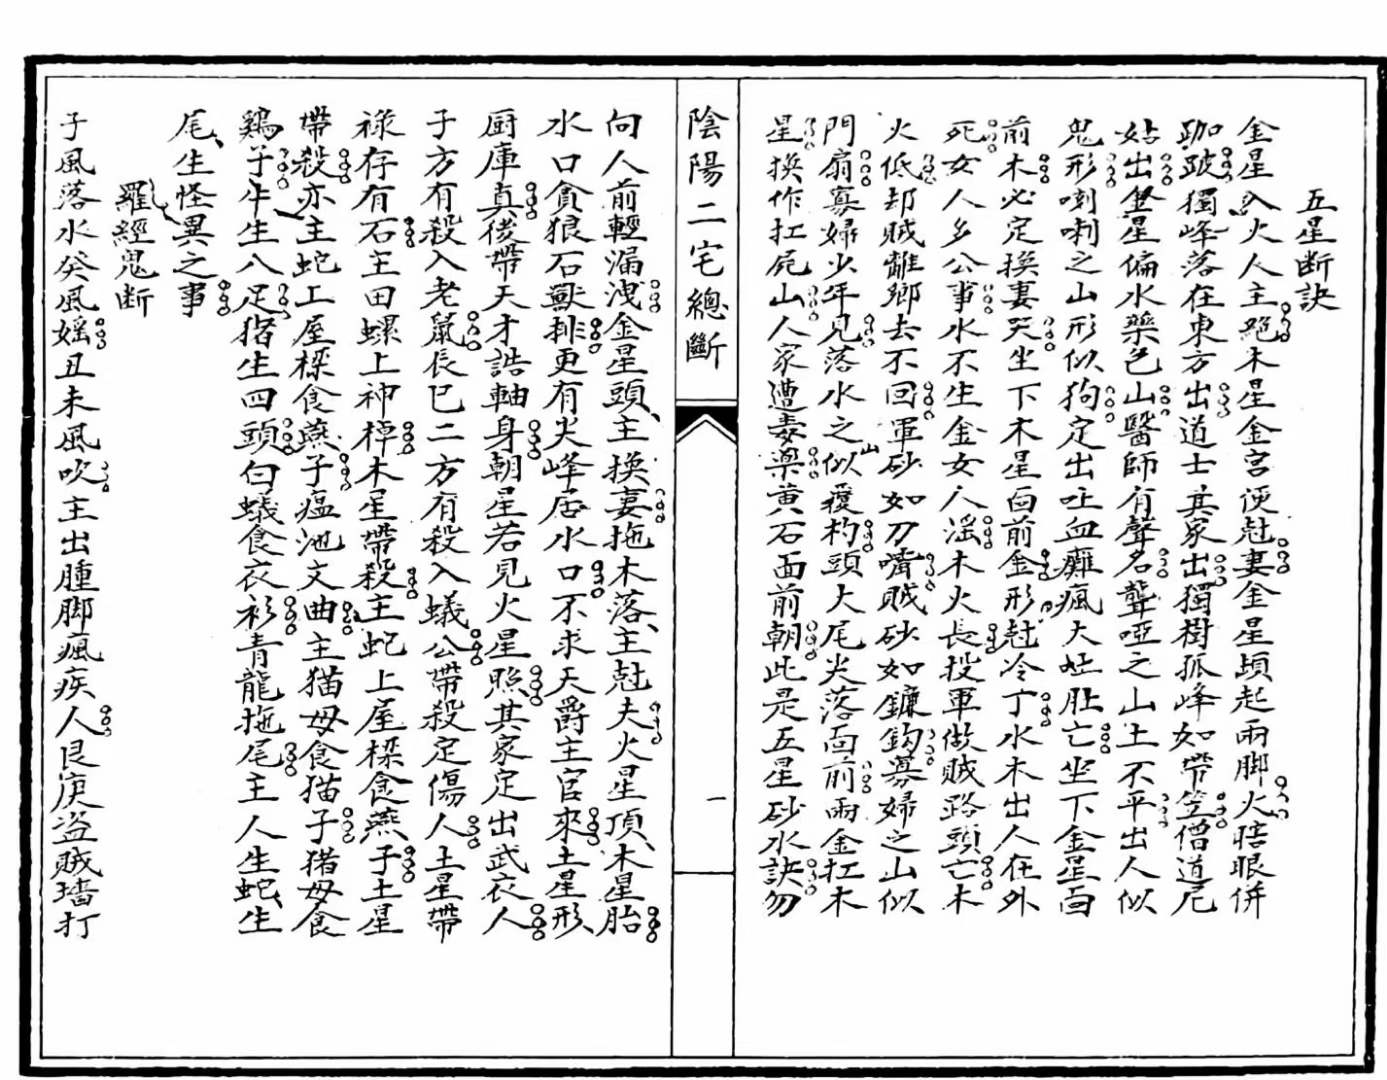 五星断訣
金星入火人主絕木星金宮便尅妻金星頭起兩脚火瞎眼併
跏跛獨峰落在東方出道士其家出獨樹孤峰如帶笠僧道尼
姑出金星偏水藥色山醫師有聲名聾啞之山土不平出人似
鬼形喇喇之山形似狗定出吐血癱瘋大肚肚亡坐下金星面
前木必定換妻哭坐下木星面前金形尅冷丁水木出人在外
死女人多公事水不生金女人淫木火長投軍做賊路頭亡木
火低却賊離鄉去不回軍砂如刀嘴賊砂如鐮鈎寡婦之山似
門扇寡婦少年見落水之山似覆杓頭大尾尖落面前兩金扛木
星換作扛屍山人家遭毒藥黃石面前朝此是五星砂水訣勿
陰陽二宅總斷
一
向人前輕漏洩金星頭主換妻拖木落主尅夫火星頂木星胎
水口貪狼石獸排更有尖峰居水口不求天爵主官來土星形
厨庫真後帶天才誥軸身朝星若見火星照其家定出武衣人
子方有殺入老鼠長巳二方有殺入蟻公帶殺定傷人土星帶
祿存有石主田螺上神棹木星帶殺主蛇上屋樑食燕子土星
帶殺亦主蛇上屋樑食燕子瘟池文曲主猫母食猫子猪母食
鷄子牛生八足猪生四頭白蟻食衣衫青龍拖尾主人生蛇生
尾生怪異之事
羅經鬼断
子風落水癸風婬丑未風吹主出腫脚瘋疾人艮庚盜賊墻打